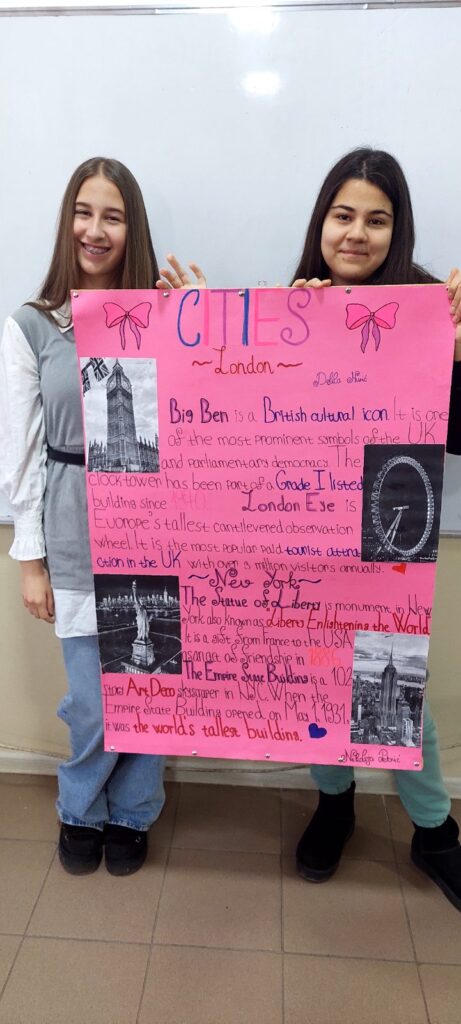 CITIES
~London~
Big Ben is a British cultural icon. It is one
of the most prominent symbols of the UK
and parliamentary democracy. The
clock tower has been part of a Grade I listed
building since
London Eye is
Europe's tallest cantilevered observation
wheel. It is the most popular paid tourist attra-
ction in the UK with over 3 million visitors annually.
~New York~
The Statue of Liberty is monument in New
York also known as Liberty Enlightening the World.
It is a gift from France to the USA
as an act of friendship in 1886.
The Empire State Building is a 102
story Art Deco skyscraper in NYC. When the
Empire State Building opened on May 1. 1931.
it was the world's tallest building.